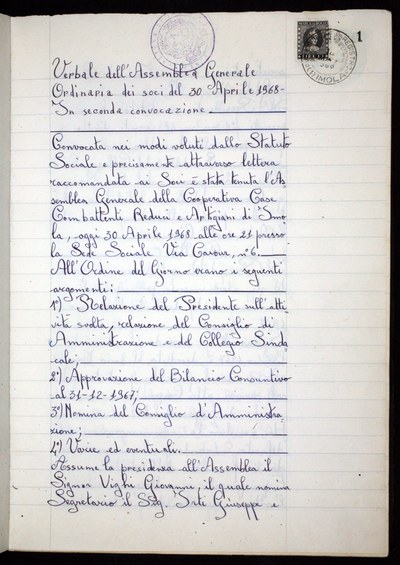 1
IMOLA
Verbale dell'Assemblea Generale
Ordinaria dei soci del 30 Aprile 1968-
In seconda convocazione.
Convocata nei modi voluti dallo Statuto
Sociale e precisamente attraverso lettera
raccomandata ai Soci è stata tenuta l'As
semblea Generale della Cooperativa Case
Combattenti Reduci e Artigiani di Imo
la, oggi 30 Aprile 1968 alle ore 21 presso
la Sede Sociale Via Cavour, n° 6.
All'Ordine del Giorno erano i seguenti
argomenti:
1°) Relazione del Presidente sull'atti
vità svolta, relazione del Consiglio di
Amministrazione e del Collegio Sinda
cale;
2°) Approvazione del Bilancio Consuntivo
al 31-12-1967;
3°) Nomina del Consiglio d'Amministra
zione;
4°) Varie ed eventuali.
Assume la presidenza all'Assemblea il
Signor Vighi Giovanni, il quale nomina
Segretario il Sig. Giuseppe e